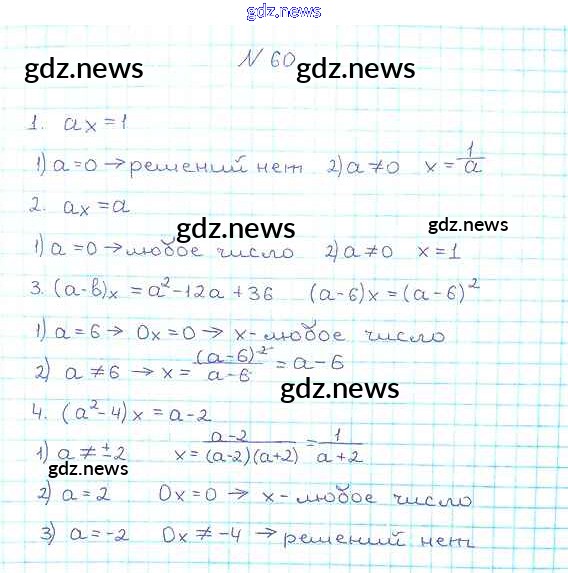 gdz.news
N 60
gdz.news gdz.news
1. ax = 1
1) a = 0 → решений нет 2) a ≠ 0 x = 1/a
2. ax = a
gdz.news gdz.news
1) a = 0 → любое число 2) a ≠ 0 x = 1
3. (a-в)x = a² - 12a + 36 (a-6)x = (a-6)²
1) a = 6 → 0x = 0 → x - любое число
2) a ≠ 6 → x = (a-6)²/a-6 = a - 6
gdz.news
4. (a² - 4)x = a - 2
1) a ≠ ±2 x = a-2/(a-2)(a+2) = 1/a+2
gdz.news
2) a = 2 0x = 0 → x - любое число
3) a = -2 0x ≠ -4 → решений нет